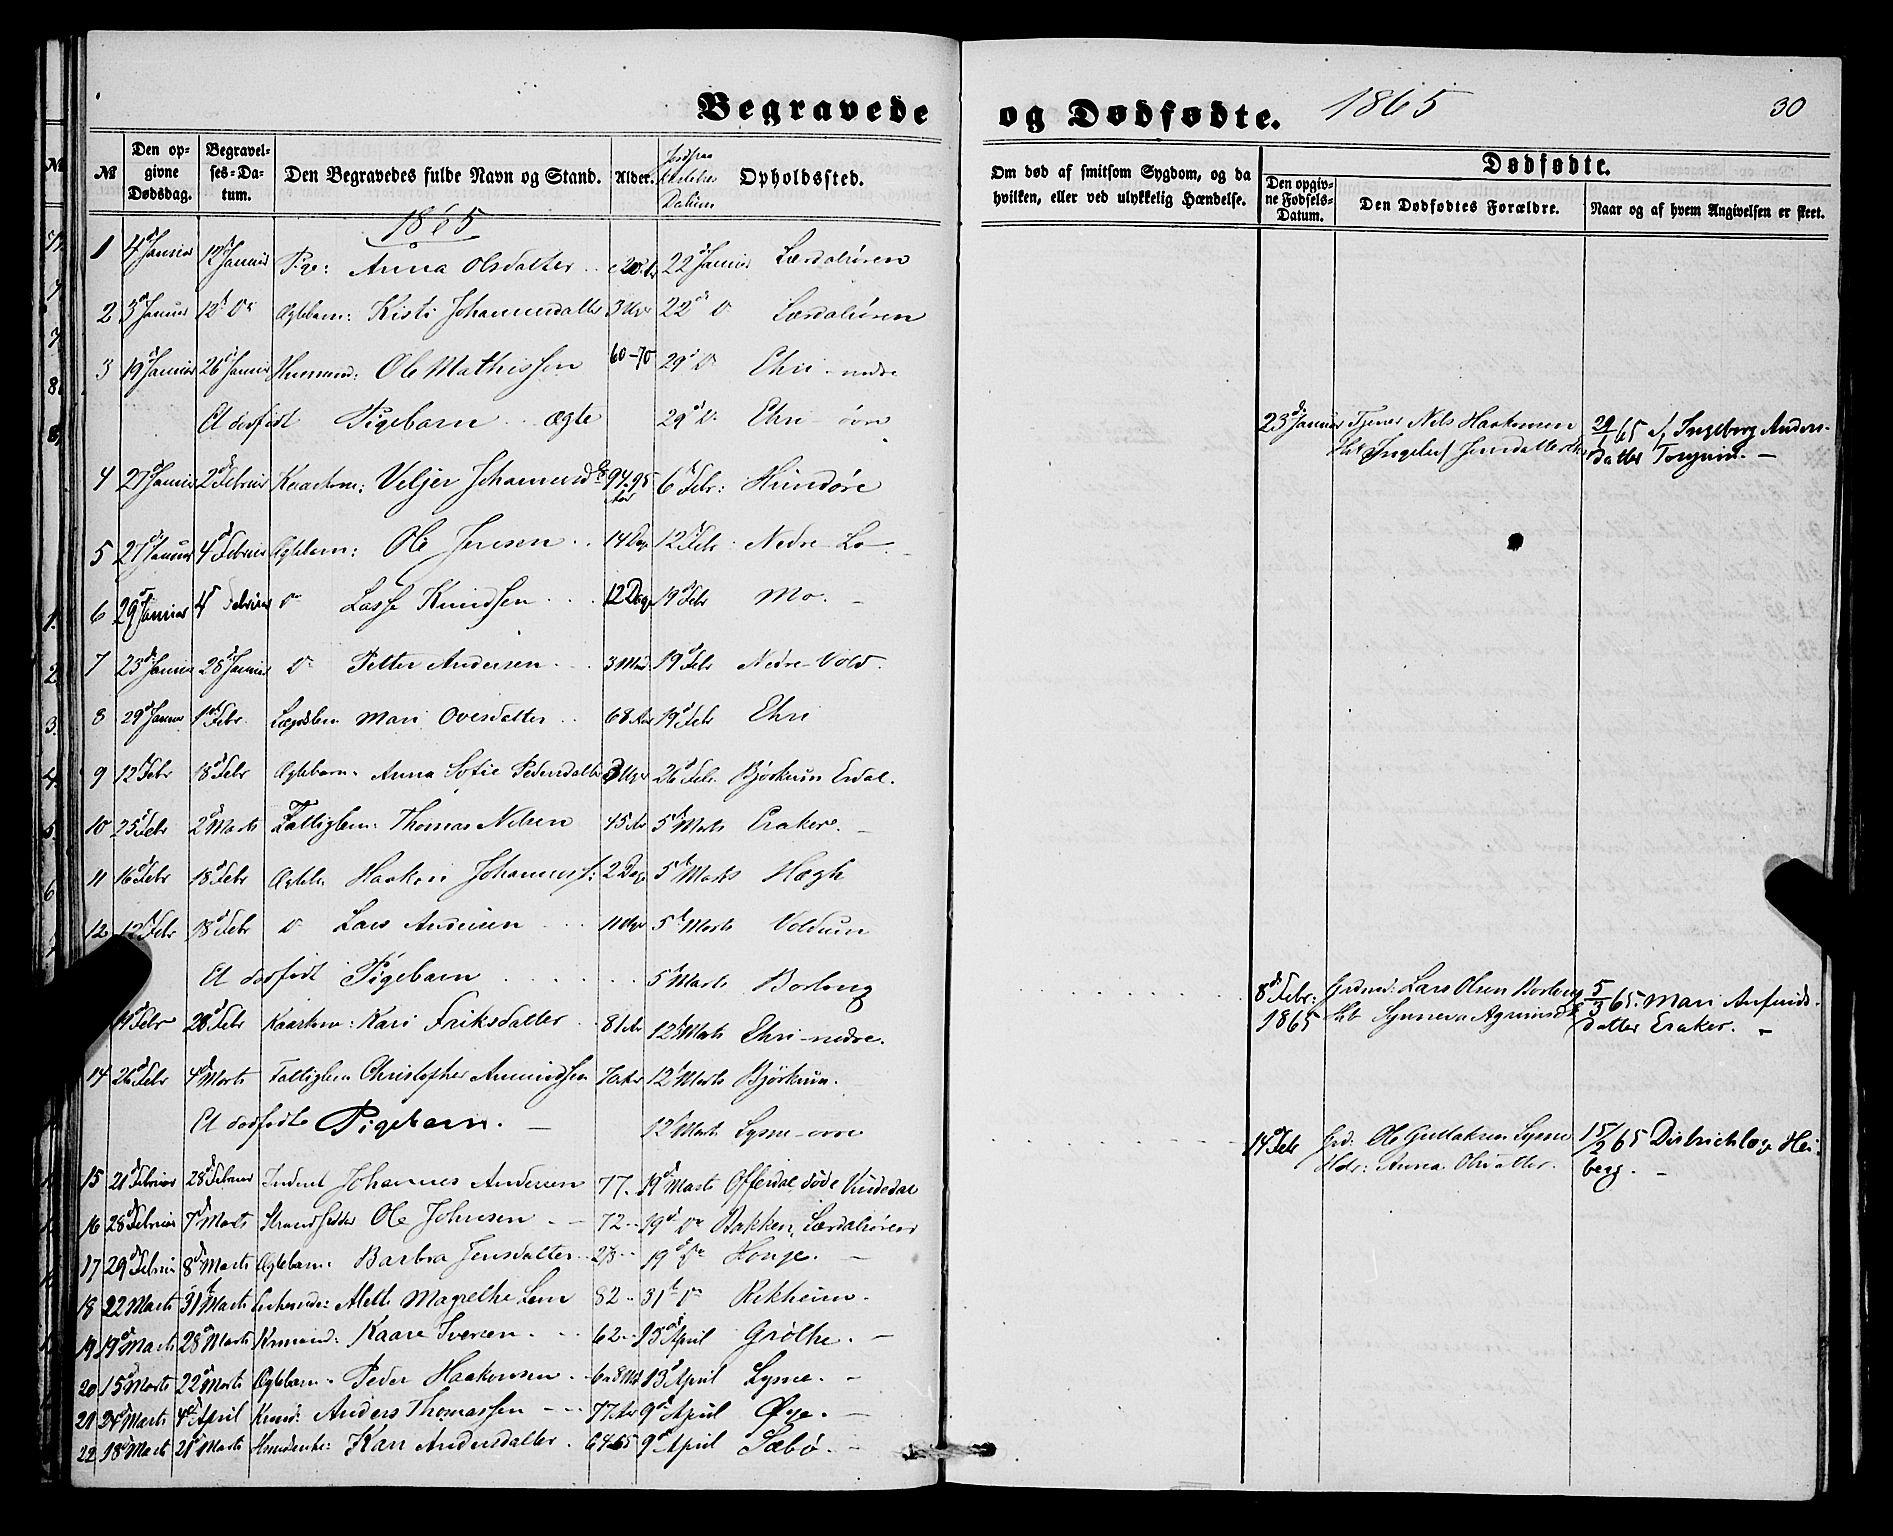 Begravede og Dødfødte. 1865 30
№ Den opgivne Dødsdag. Begravelses-Datum. Den Begravedes fulde Navn og Stand. Alder. Jordpaa Datum Opholdssted. Om død af smitsom Sygdom, og da hvilken, eller ved ulykkelig Hændelse. Dødfødte. Den opgivne Fødsels-Datum. Den Dødfødtes Forældre. Naar og af hvem Angivelsen er skeet.
1865
1 4d Januar 12d Januar Pige: Anna Olsdatter 22d Januar Lærdalsøren
2 3d Januar 12d Do Ægtebarn: Kisti Johannesdatter 3 Uger 22d Do Lærdalsøren
3 19d Januar 26d Januar Husmand: Ole Mathissen 60-70 29d Do Ehri nedre
Et dødfødt Pigebarn ægte 29d Do Ehri øvre 23d Januar Nils Haakensen 29/1 65 Ingeborg Andersdatter
4 27 Januar 2d Februar Kaarkone: Johannesdr 94-95 Aar 6d Febr: Hundøre
5 27d Januar 4d Februar Ægtebarn: Ole Jensen 14 Dage 12d Febr Nedre Lo
6 29d Januar 4d Februar do Lasse Knudsen 12 Dage 19d Febr Mo
7 23d Januar 28d Januar do Petter Andersen 3 Mdr 19d Febr Nedre Vold
8 29d Januar 1st Febr. Lægdslem Mari Ovesdatter 68 Aar 19d Febr Ehri
9 12d Febr 18d Febr Ægtebarn Anna Sofie Pedersdatter 3 Uger 26d Feb. Bjørkum Erdal.
10 25d Febr 2d Marts Fattiglem: Thomas Nilsen 45 Ar 5te Marts Eraker.
11 16d Febr 18d Febr Ægteb. Haaken Johanness: 2 Dage 5te Marts Hægh
12 12d Febr 18d Febr do Lars Andersen 11 Uger 5te Marts Voldum
Et dødfødt Pigebarn 5te Marts Borlaug 8d Febr: 1865 Grdmd: Lars Olsen Borlaug Hst Synneva 5/3 65. Mari Anfindsdatter Eraker.
Febr 28d Febr Kaarkone: Kari Eriksdatter 81 Ar 12te Marts Ehri nedre.
14 26d Febr 4d Marts Fattiglem Christopher Amundsen 12te Marts Bjørkum.
Et dødfødte Pigebarn. 12te Marts Lysne øvre 14d Febr Grd: Ole Lysne Hstr: Anna Olsdatter. 15/2 65 Districtslæge Heiberg.
15 21d Februar 28d Februar Inderst Johannes Andersen 77 19d Marts Offerdal, døde Vindedal
16 28d Februar 7d Marts Strandsidder Ole Johnsen 72 19d Do Bakken, Lærdalsøren
17 29d Februar 8d Marts Ægtebarn Barbra Jensdatter 19d Do Hauge.
18 22 Marts 31te Marts Alette Magrethe Lem 82 31te Do Rikheim
19 19d Marts 28d Marts Krmand: Kaare Iversen 62 15d April Grøthe.
20 15d Marts 22d Marts Ægtebarn Peder Haakensen 13d April Lysne.
21 24d Marts 4d April Anders Thomassen 77 Ar 9d April Øye.
22 18d Mart 21d Marts Kari Andersdatter 64-65 9d April Sæbø.